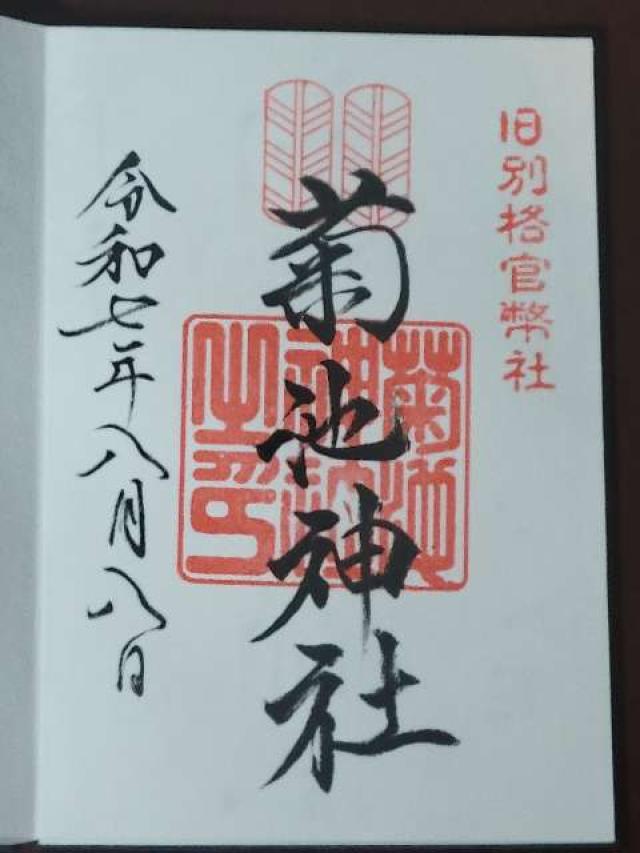 旧別格官幣社
菊池神社
菊池神社之印
令和七年八月八日